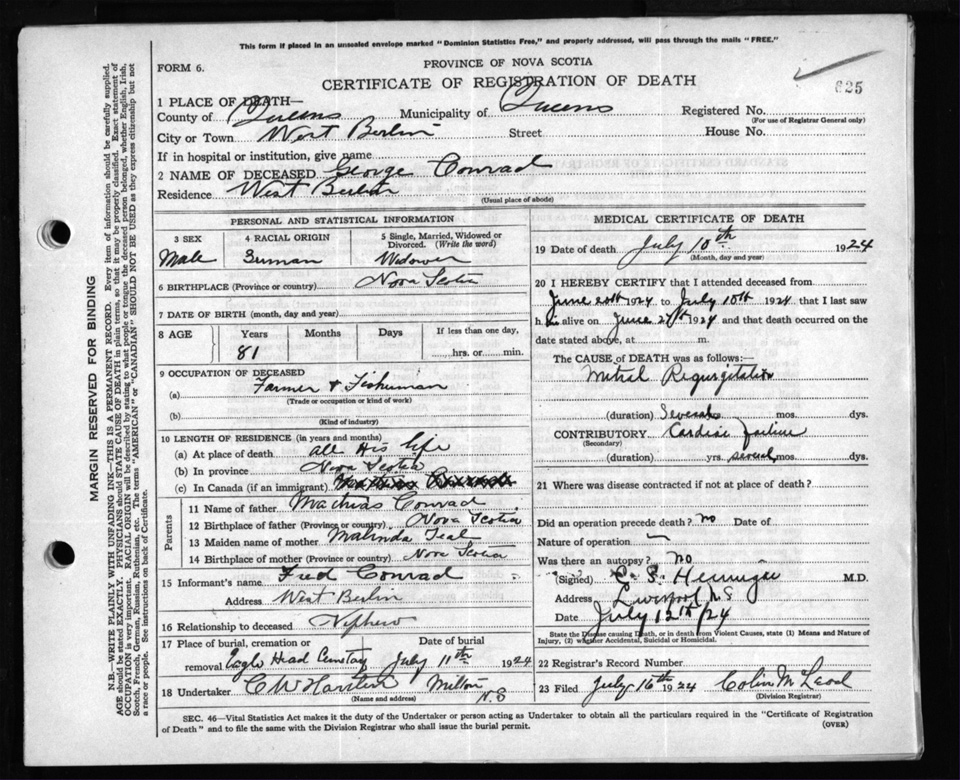 This form if placed in an unsealed envelope marked "Dominion Statistics Free," and properly addressed, will pass through the mails "FREE."
PROVINCE OF NOVA SCOTIA
FORM 6.
CERTIFICATE OF REGISTRATION OF DEATH
625
1 PLACE OF DEATH—
County of Queens Municipality of Queens Registered No.
(For use of Registrar General only)
City or Town West Berlin Street House No.
If in hospital or institution, give name
2 NAME OF DECEASED George Conrad
Residence West Berlin
(Usual place of abode)
PERSONAL AND STATISTICAL INFORMATION
3 SEX 4 RACIAL ORIGIN 5 Single, Married, Widowed or Divorced. (Write the word)
Male German Widower
6 BIRTHPLACE (Province or country) Nova Scotia
7 DATE OF BIRTH (month, day and year)
8 AGE Years Months Days If less than one day,
81 hrs. or min.
9 OCCUPATION OF DECEASED
(a) Farmer & Fisherman
(Trade or occupation or kind of work)
(b)
(Kind of industry)
10 LENGTH OF RESIDENCE (in years and months)
(a) At place of death all His life
(b) In province Nova Scotia
(c) In Canada (if an immigrant)
Parents
11 Name of father Mathias Conrad
12 Birthplace of father (Province or country) Nova Scotia
13 Maiden name of mother Malinda Teal
14 Birthplace of mother (Province or country) Nova Scotia
15 Informant's name Fred Conrad
Address West Berlin
16 Relationship to deceased Nephew
17 Place of burial, cremation or removal Date of burial
Eagle Head Cemetary July 11th 1924
18 Undertaker C W Milton N.S
(Name and address)
MEDICAL CERTIFICATE OF DEATH
19 Date of death July 10th 1924
(Month, day and year)
20 I HEREBY CERTIFY that I attended deceased from
June 1924 to July 10th 1924 that I last saw
h is alive on June 27th 1924 and that death occurred on the
date stated above, at m.
The CAUSE OF DEATH was as follows:—
Mitral Regurgitation
(duration) Several mos. dys.
CONTRIBUTORY Cardiac failure
(Secondary)
(duration) yrs. several mos. dys.
21 Where was disease contracted if not at place of death?
Did an operation precede death? no Date of
Nature of operation
Was there an autopsy? no
(Signed) C. S. Hennigar M.D.
Address Liverpool N.S
Date July 12th/24
State the Disease causing Death, or in death from Violent Causes, state (1) Means and Nature of
Injury, (2) whether Accidental, Suicidal or Homicidal.
22 Registrar's Record Number
23 Filed July 16th 1924 Colin M
(Division Registrar)
SEC. 46—Vital Statistics Act makes it the duty of the Undertaker or person acting as Undertaker to obtain all the particulars required in the "Certificate of Registration
of Death" and to file the same with the Division Registrar who shall issue the burial permit.
(OVER)
MARGIN RESERVED FOR BINDING
N.B.—WRITE PLAINLY WITH UNFADING INK—THIS IS A PERMANENT RECORD. Every item of information should be carefully supplied.
AGE should be stated EXACTLY. PHYSICIANS should STATE CAUSE OF DEATH in plain terms, so that it may be properly classified. Exact statement of
OCCUPATION is very important. RACIAL ORIGIN will be described by stating to what people or tongue the deceased person belonged, whether English, Irish,
Scotch, French, German, Russian, Ruthenian, etc. The terms "AMERICAN" or "CANADIAN" SHOULD NOT BE USED as they express citizenship but not
a race or people. See instructions on back of Certificate.